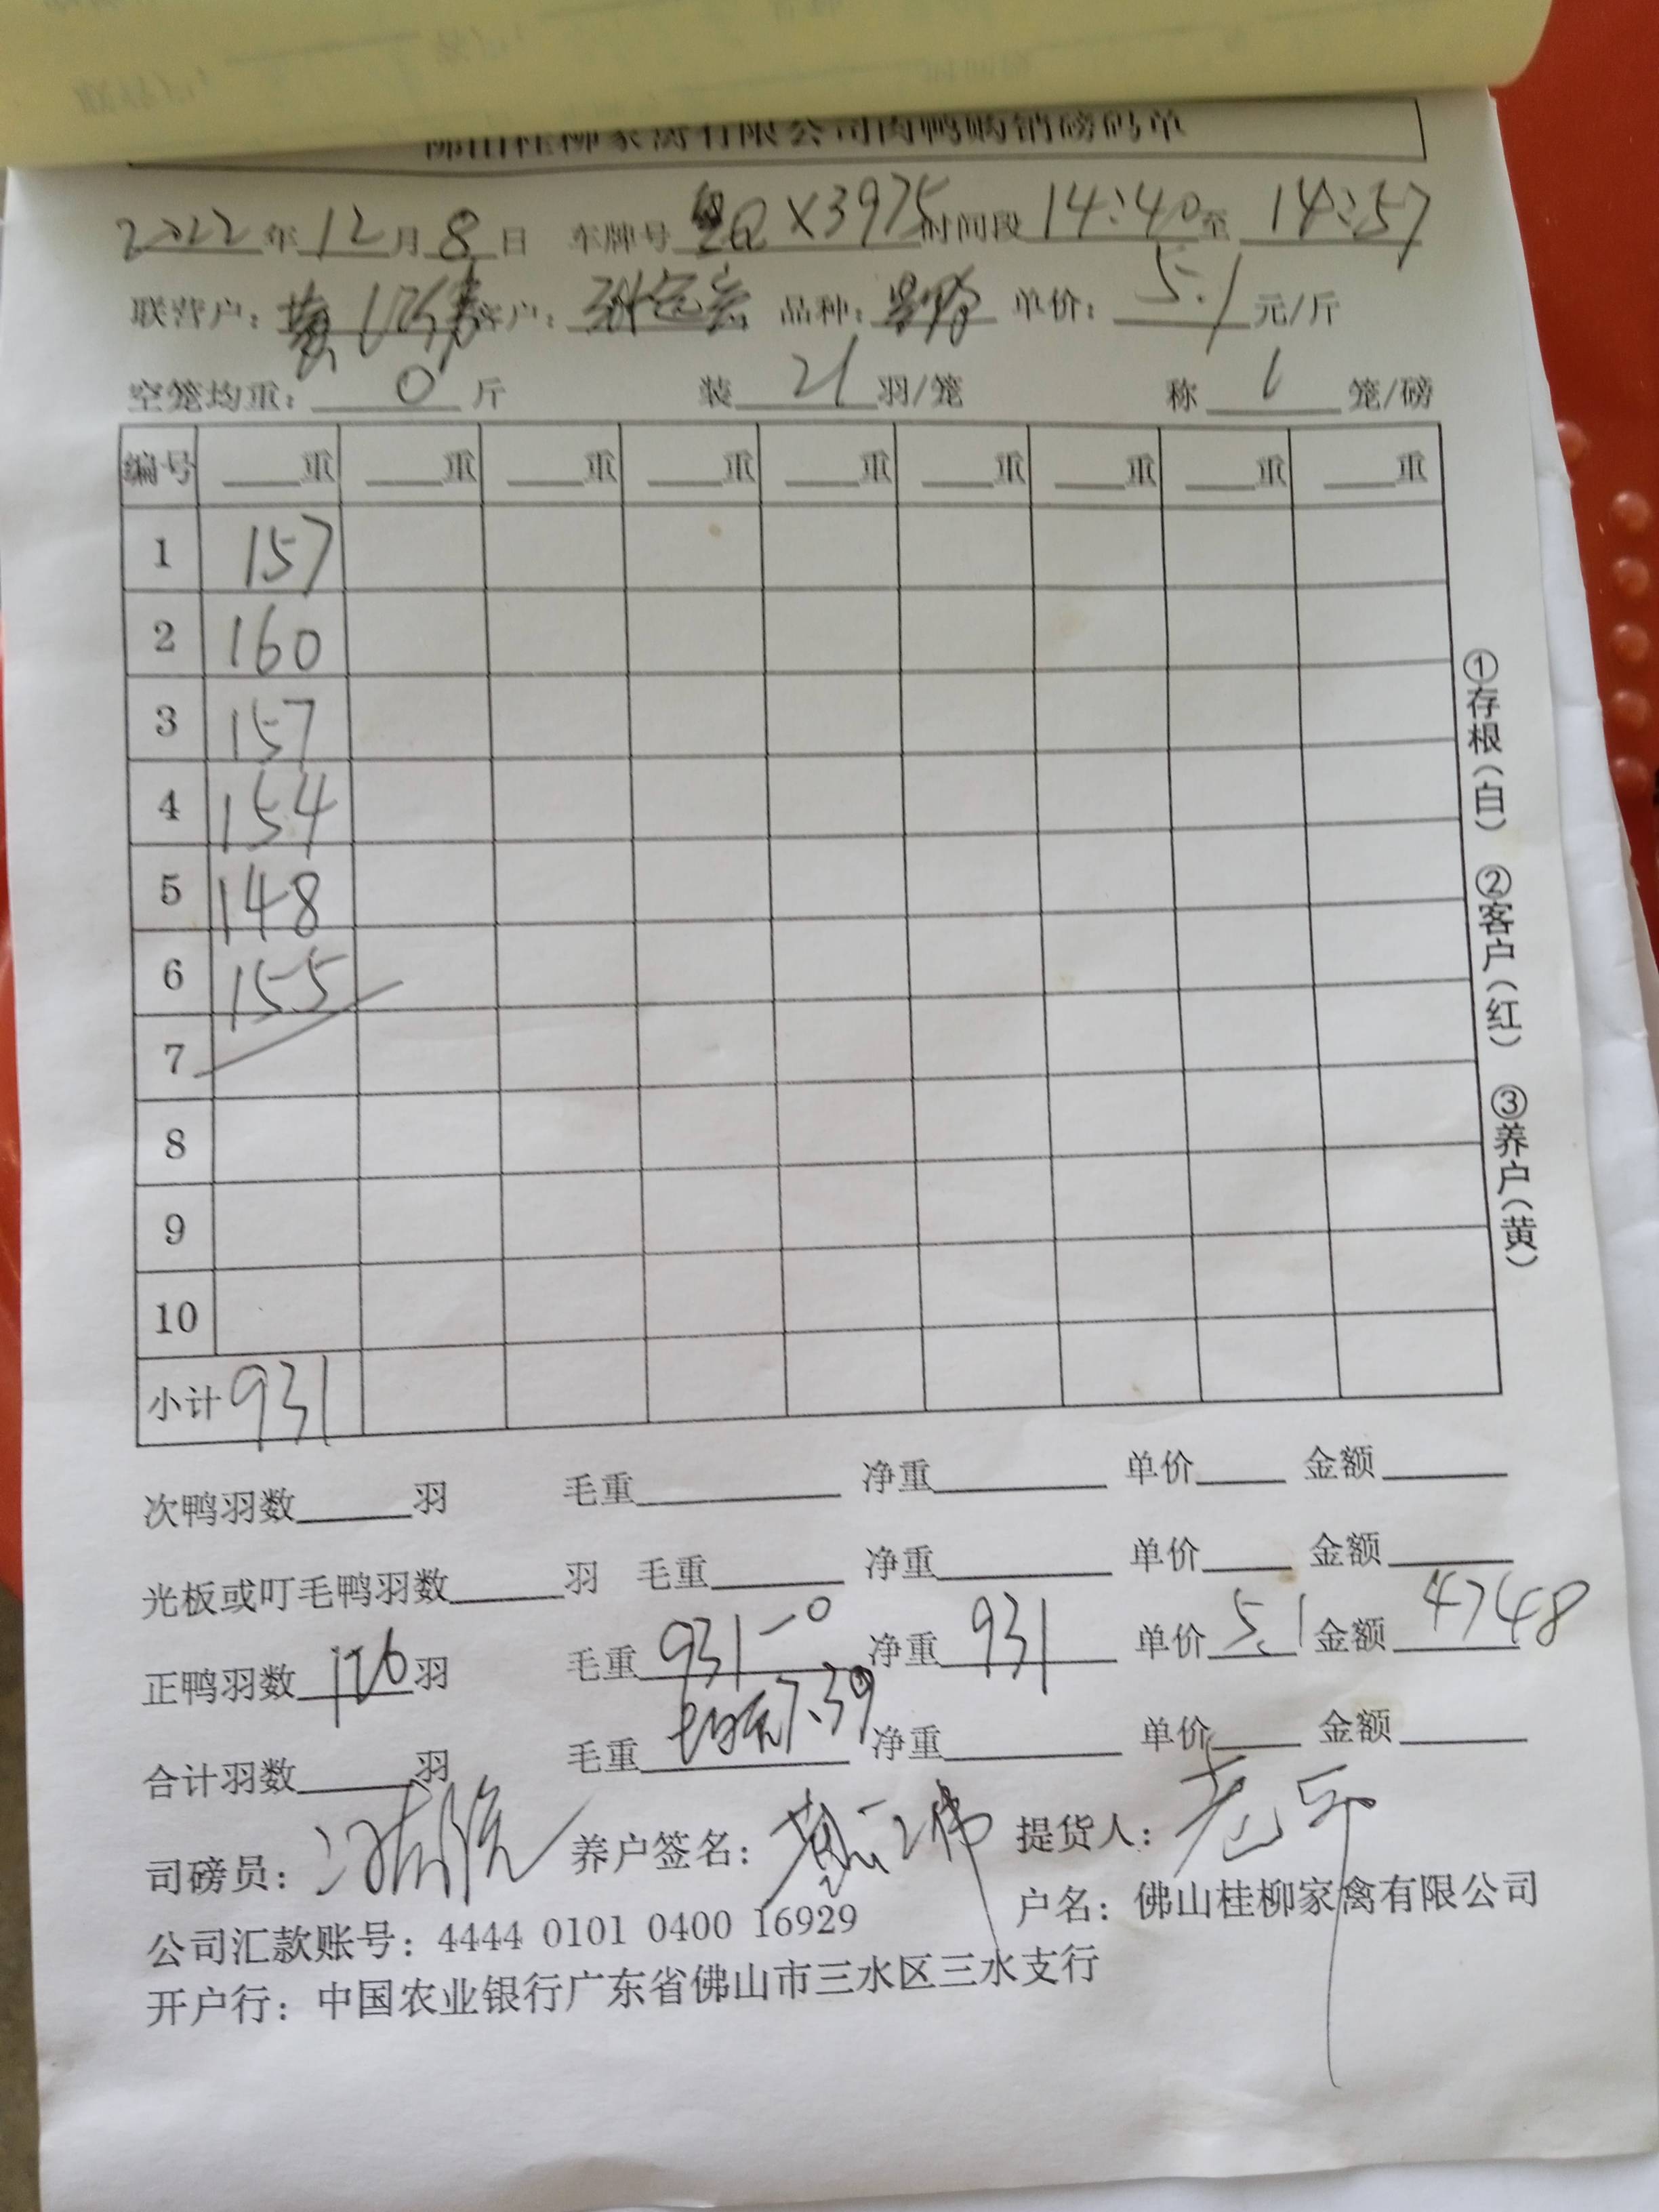 佛山桂柳家禽有限公司肉鸭购销磅码单
2022年12月8日 车牌号 粤Q X3975 时间段 14:40 至 14:57
联营户： 黄 客户： 品种： 单价： 5.1 元/斤
空笼均重： 0 斤 装 21 羽/笼 称 1 笼/磅
编号 重 重 重 重 重 重 重 重 重
1 157
2 160
3 157
4 154
5 148
6 155
7
8
9
10
小计 931
①存根(白) ②客户(红) ③养户(黄)
次鸭羽数 羽 毛重 净重 单价 金额
光板或叮毛鸭羽数 羽 毛重 净重 单价 金额
正鸭羽数 126 羽 毛重 931-0 净重 931 单价 5.1 金额 4748
合计羽数 羽 毛重 均重7.39 净重 单价 金额
司磅员： 养户签名： 黄 提货人：
公司汇款账号：4444 0101 0400 16929 户名：佛山桂柳家禽有限公司
开户行：中国农业银行广东省佛山市三水区三水支行